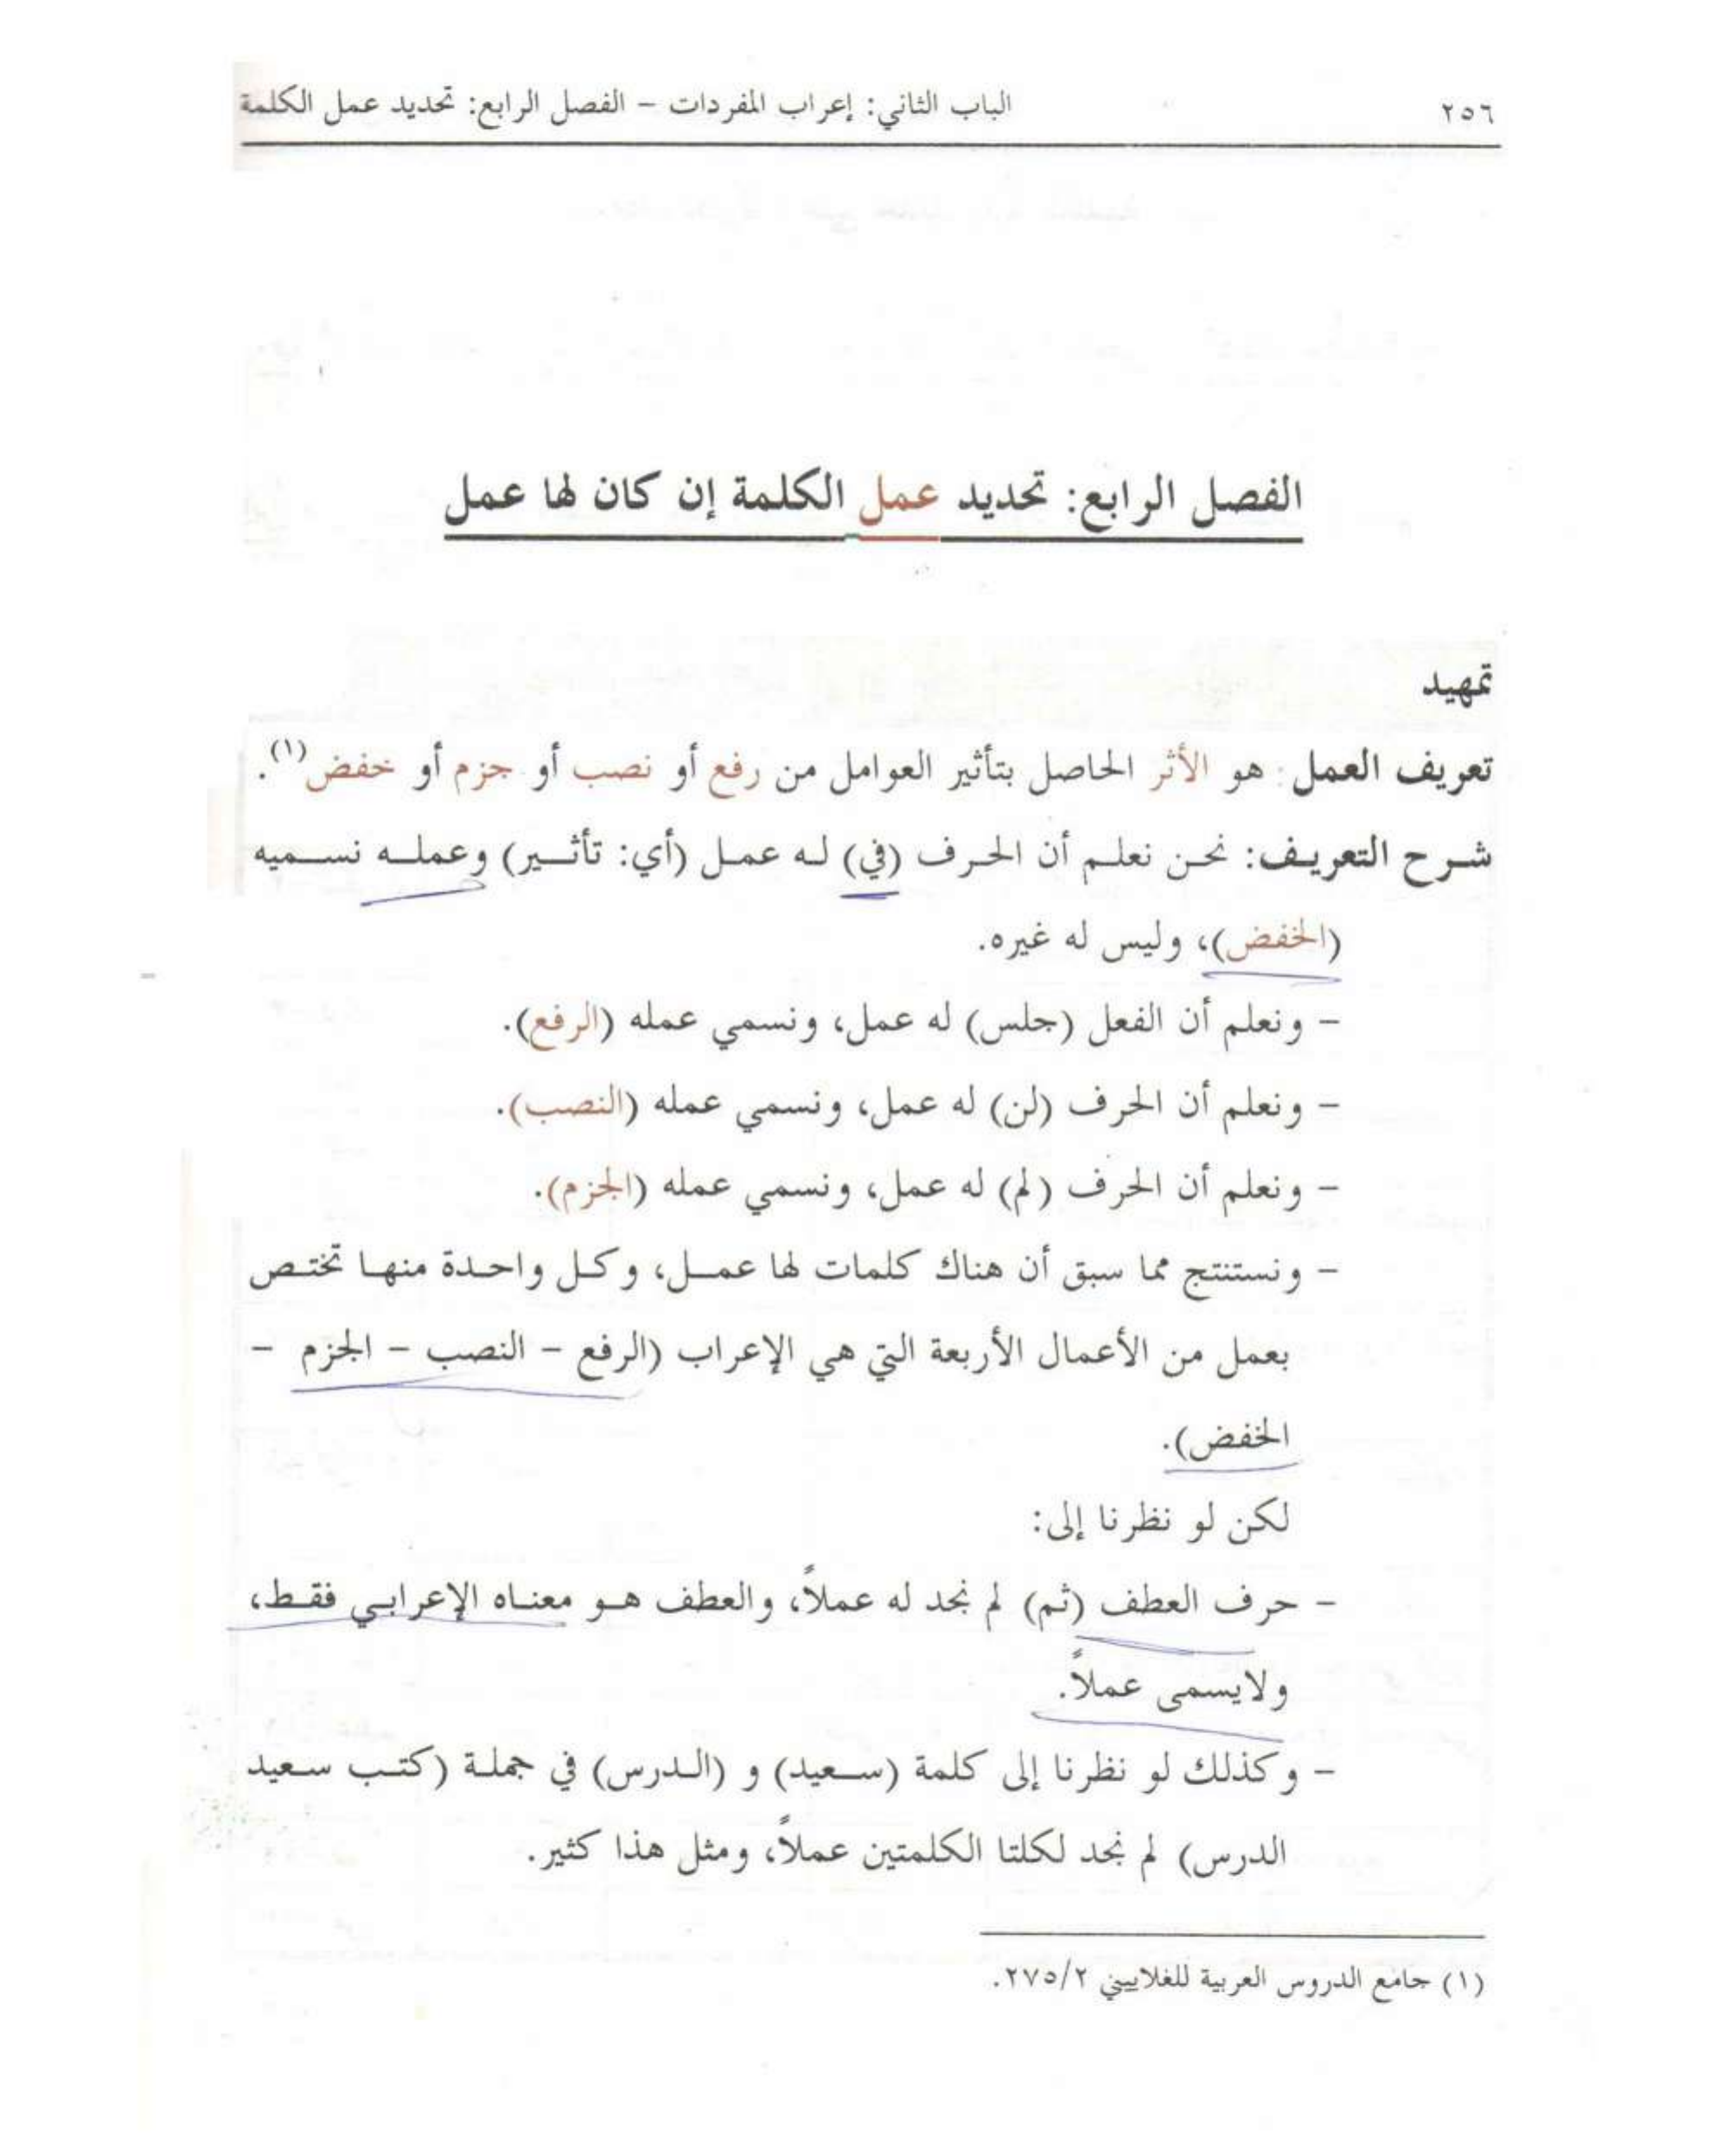 ٢٥٦ الباب الثاني: إعراب المفردات – الفصل الرابع: تحديد عمل الكلمة
الفصل الرابع: تحديد عمل الكلمة إن كان لها عمل
تمهيد
تعريف العمل: هو الأثر الحاصل بتأثير العوامل من رفع أو نصب أو جزم أو خفض(١).
شرح التعريف: نحن نعلم أن الحرف (في) له عمل (أي: تأثير) وعمله نسميه
(الخفض)، وليس له غيره.
– ونعلم أن الفعل (جلس) له عمل، ونسمي عمله (الرفع).
– ونعلم أن الحرف (لن) له عمل، ونسمي عمله (النصب).
– ونعلم أن الحرف (لم) له عمل، ونسمي عمله (الجزم).
– ونستنتج مما سبق أن هناك كلمات لها عمل، وكل واحدة منها تختص
بعمل من الأعمال الأربعة التي هي الإعراب (الرفع – النصب – الجزم –
الخفض).
لكن لو نظرنا إلى:
– حرف العطف (ثم) لم نجد له عملاً، والعطف هو معناه الإعرابي فقط،
ولايسمى عملاً.
– وكذلك لو نظرنا إلى كلمة (سعيد) و (الدرس) في جملة (كتب سعيد
الدرس) لم نجد لكلتا الكلمتين عملاً، ومثل هذا كثير.
(١) جامع الدروس العربية للغلاييني ٢٧٥/٢.